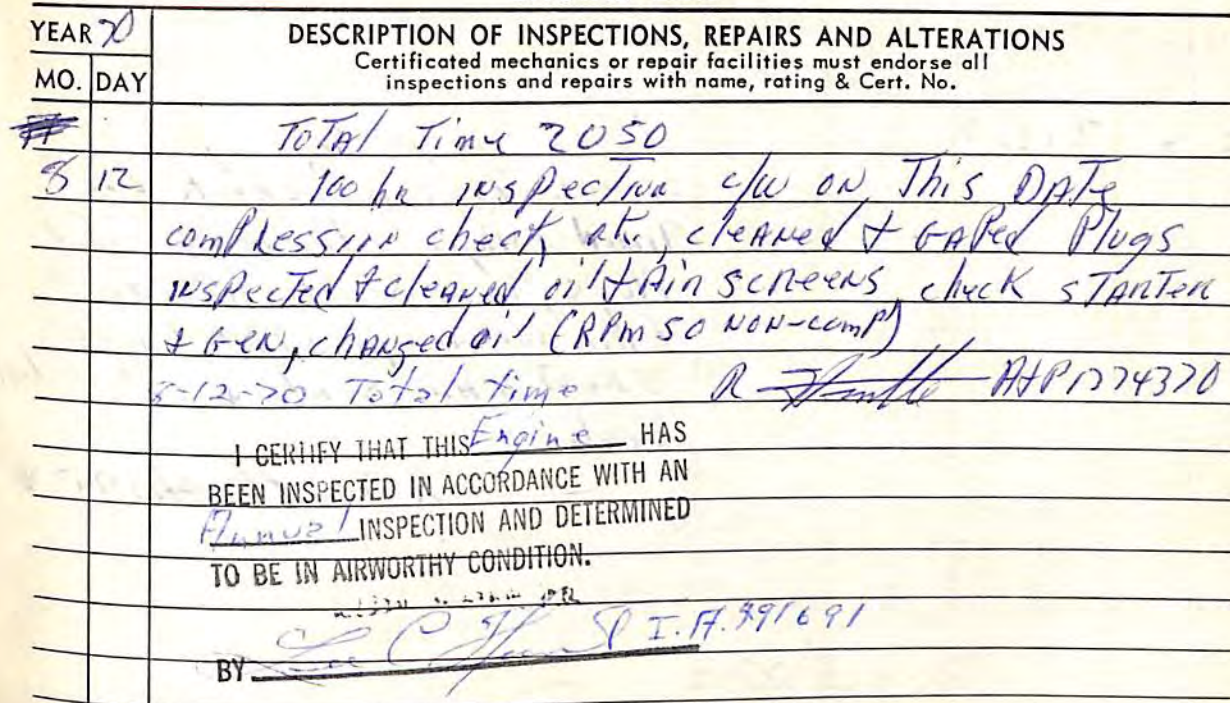 YEAR 70
DESCRIPTION OF INSPECTIONS, REPAIRS AND ALTERATIONS
Certificated mechanics or repair facilities must endorse all
MO. DAY
inspections and repairs with name, rating & Cert. No.
Total Time 2050
8 12 100 hr inspection c/w on This DATE
compression check, etc. cleaned & GAPed Plugs
inspected & cleaned oil & Air screens, check sTARTER
& GEN, changed oil (RPM 50 NON-comp)
8-12-70 Total time R A&P 1774370
I CERTIFY THAT THIS Engine HAS
BEEN INSPECTED IN ACCORDANCE WITH AN
Annual INSPECTION AND DETERMINED
TO BE IN AIRWORTHY CONDITION.
BY Lee C I.A. 991691